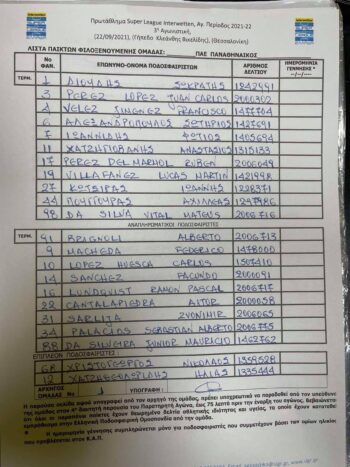 Πρωτάθλημα Super League Interwetten, Αγ. Περίοδος 2021-22
3η Αγωνιστική,
(22/09/2021), (Γήπεδο Κλεάνθης Βικελίδης), (Θεσσαλονίκη)
ΛΙΣΤΑ ΠΑΙΚΤΩΝ ΦΙΛΟΞΕΝΟΥΜΕΝΗΣ ΟΜΑΔΑΣ: ΠΑΕ ΠΑΝΑΘΗΝΑΪΚΟΣ
Νο ΦΑΝ. ΕΠΩΝΥΜΟ-ΟΝΟΜΑ ΠΟΔΟΣΦΑΙΡΙΣΤΩΝ ΑΡΙΘΜΟΣ ΔΕΛΤΙΟΥ ΗΜΕΡΟΜΗΝΙΑ ΓΕΝΝΗΣΗΣ *
ΤΕΡΜ. 1 ΔΙΟΥΔΗΣ ΣΩΚΡΑΤΗΣ 1242991
3 PEREZ LOPEZ JUAN CARLOS 2000302
4 VELEZ JIMENEZ FRANCISCO 1477704
6 ΑΛΕΞΑΝΔΡΟΠΟΥΛΟΣ ΣΩΤΗΡΙΟΣ 1427691
7 ΙΩΑΝΝΙΔΗΣ ΦΩΤΙΟΣ 1405684
11 ΧΑΤΖΗΓΙΟΒΑΝΗΣ ΑΝΑΣΤΑΣΙΟΣ 1315133
17 PEREZ DEL MARMOL RUBEN 2006049
19 VILLAFANEZ LUCAS MARTIN 1421998
27 ΚΩΤΣΙΡΑΣ ΙΩΑΝΝΗΣ 1228371
44 ΠΟΥΓΓΟΥΡΑΣ ΑΧΙΛΛΕΑΣ 1297986
98 DA SILVA VITAL MATEUS 2006716
ΑΝΑΠΛΗΡΩΜΑΤΙΚΟΙ ΠΟΔΟΣΦΑΙΡΙΣΤΕΣ
ΤΕΡΜ. 91 BRIGNOLI ALBERTO 2006713
9 MACHEDA FEDERICO 1478000
10 LOPEZ HUESCA CARLOS 1507410
14 SANCHEZ FACUNDO 2000091
16 LUNDQVIST RAMON PASCAL 2006717
22 CANTALAPIEDRA AITOR 2000058
31 SARLIJA ZVONIMIR 2006065
34 PALACIOS SEBASTIAN ALBERTO 2006775
88 DA SILVEIRA JUNIOR MAURICIO 1462762
ΕΠΙΠΛΕΟΝ ΠΟΔΟΣΦΑΙΡΙΣΤΕΣ
68 ΧΡΙΣΤΟΓΕΩΡΓΟΣ ΝΙΚΟΛΑΟΣ 1358528
12 ΗΛΙΑΣ 1335444
ΑΡΧΗΓΟΣ ΟΜΑΔΑΣ 1 ΥΠΟΓΡΑΦΗ
Η παρούσα σελίδα αφού υπογραφεί από τον αρχηγό της ομάδας, πρέπει υποχρεωτικά να παραδοθεί από τον υπεύθυνο
της ομάδας στον 4ο διαιτητή παρουσία του Παρατηρητή Αγώνα, έως 75 λεπτά πριν την έναρξη του αγώνα. Βεβαιώνεται
ότι όλοι οι παραπάνω παίκτες έχουν θεωρημένα δελτία αθλητικής ιδιότητας και υγείας, τα οποία έχουν κατατεθεί
εμπρόθεσμα στην Ελληνική Ποδοσφαιρική Ομοσπονδία από την ομάδα.
* Η ημερομηνία γέννησης συμπληρώνεται μόνο για ποδοσφαιριστές που συμμετέχουν βάσει των ορίων ηλικίας
που προβλέπεται στον Κ.Α.Π.